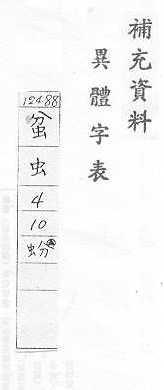 補充資料
異體字表
12488
蚠
虫
4
10
蚡